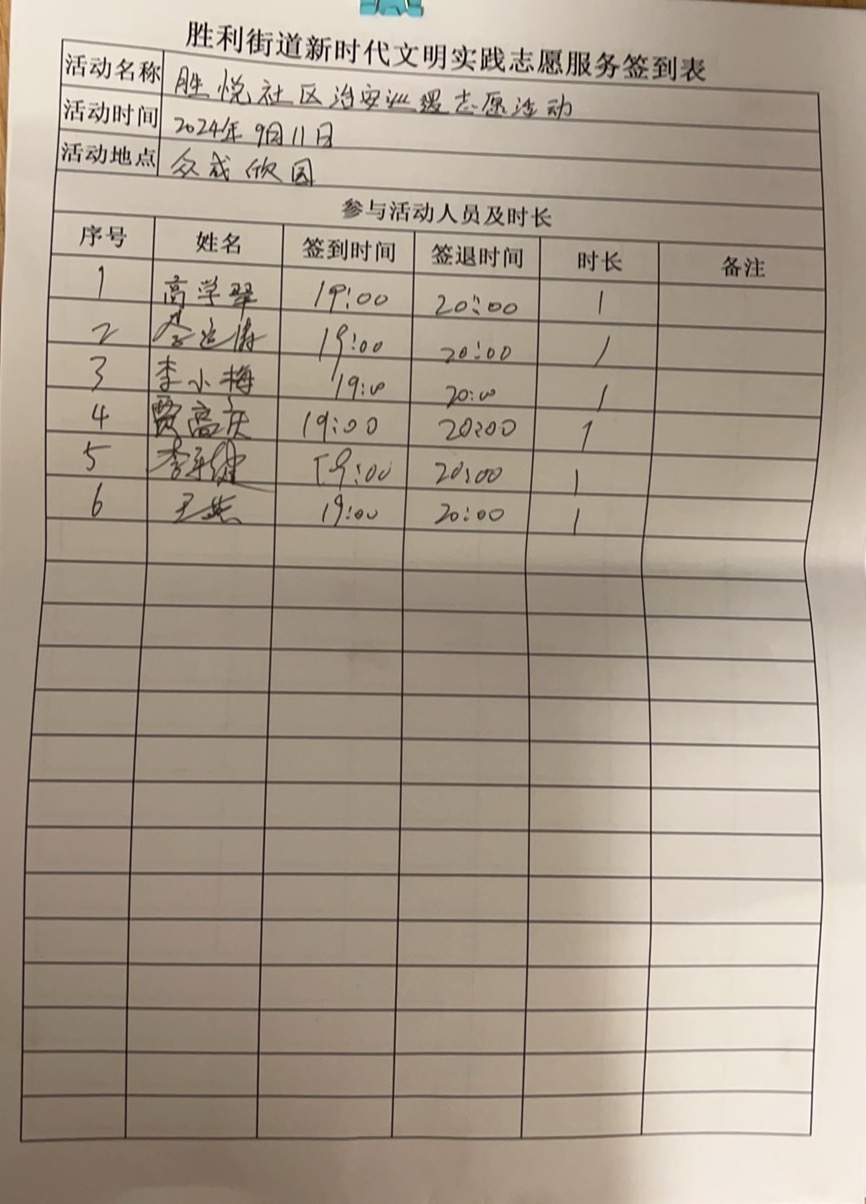 胜利街道新时代文明实践志愿服务签到表
活动名称 胜悦社区治安巡逻志愿活动
活动时间 2024年9月11日
活动地点 众成欣园
参与活动人员及时长
序号 姓名 签到时间 签退时间 时长 备注
1 高学翠 19:00 20:00 1
2 19:00 20:00 1
3 李小梅 19:00 20:00 1
4 贾高庆 19:00 20:00 1
5 李 19:00 20:00 1
6 王燕 19:00 20:00 1